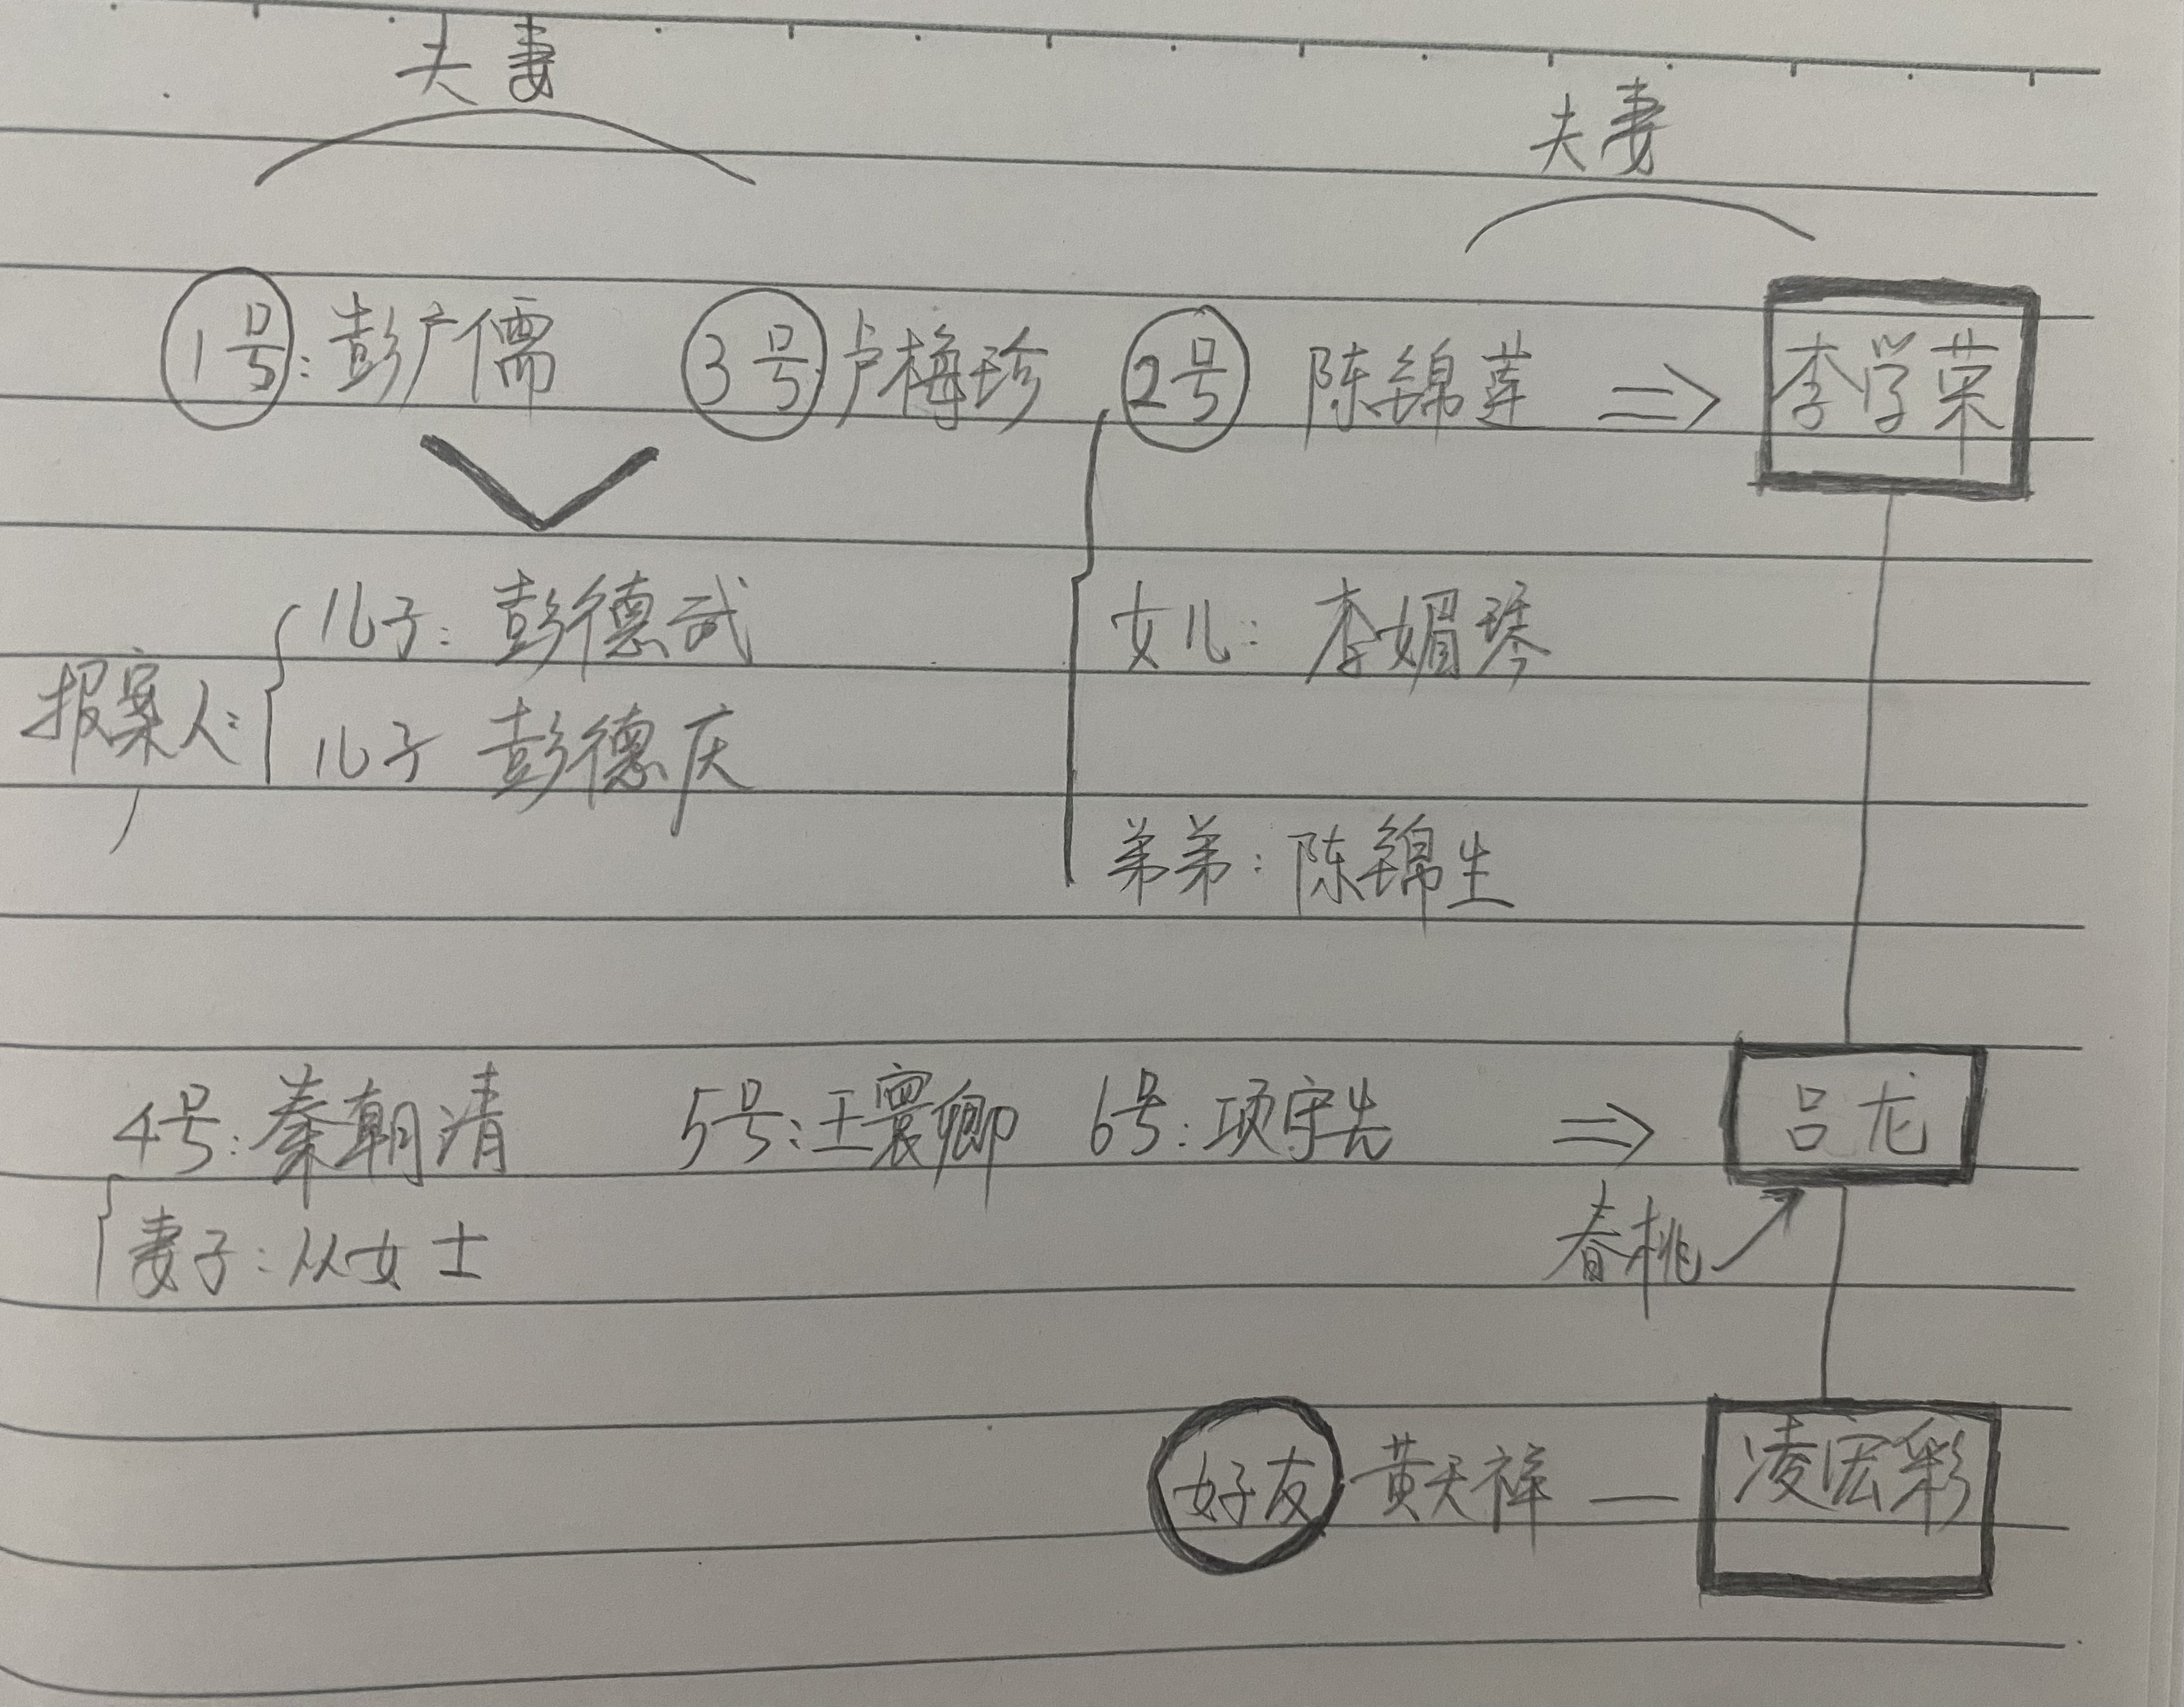 夫妻 夫妻
1号:彭广儒 3号 卢梅珍 2号 陈锦莲 ⇒ 李学荣
儿子:彭德武 女儿:李媚琴
报案人:
儿子 彭德庆
弟弟:陈锦生
4号:秦朝清 5号:王寰卿 6号:项守先 ⇒ 吕龙
妻子:从女士 春桃
好友 黄天祥 — 凌宏彩